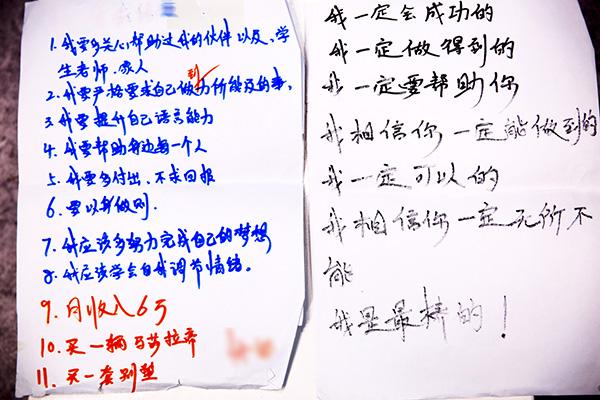 1. 我要多关心帮助过我的伙伴以及、学
生老师、家人
2. 我要严格要求自己做到力所能及的事,
3. 我要提升自己语言能力
4. 我要帮助身边每一个人
5. 我要多付出、不求回报
6. 要以身做则.
7. 我应该多努力完成自己的梦想
8. 我应该学会自我调节情绪。
9. 月收入6万
10. 买一辆马莎拉蒂
11. 买一套别墅
我一定会成功的
我一定做得到的
我一定要帮助你
我相信你一定能做到的
我一定可以的
我相信你一定无所不
能
我是最棒的!